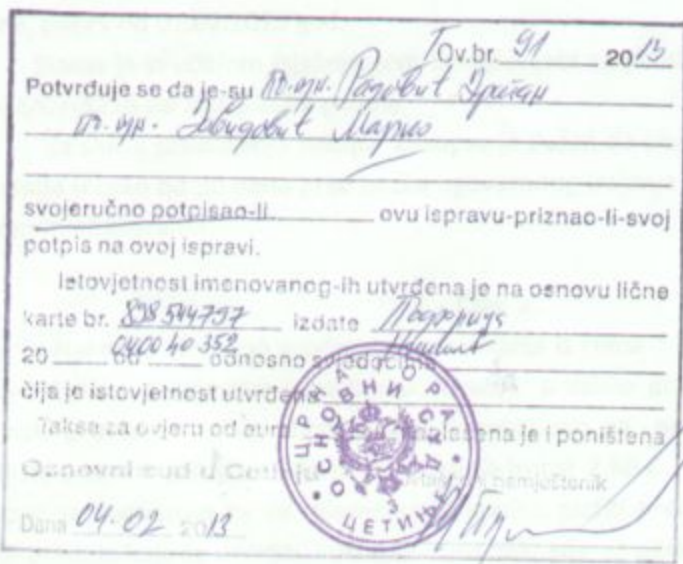 Ov.br. 91 2013
Potvrđuje se da je-su Радовић Драган
Марко
svojeručno potpisao-li ovu ispravu-priznao-li-svoj
potpis na ovoj ispravi.
Istovjetnost imenovanog-ih utvrđena je na osnovu lične
karte br. 898544797 izdate Подгорица
20 od 040040352 odnosno svjedočite
čija je istovjetnost utvrđena
Taksa za ovjeru od eura naplaćena je i poništena
Osnovni sud u Cetinju namještenik
Dana 04.02 2013
ЦРНА ГОРА
ОСНОВНИ СУД
3
ЦЕТИЊЕ